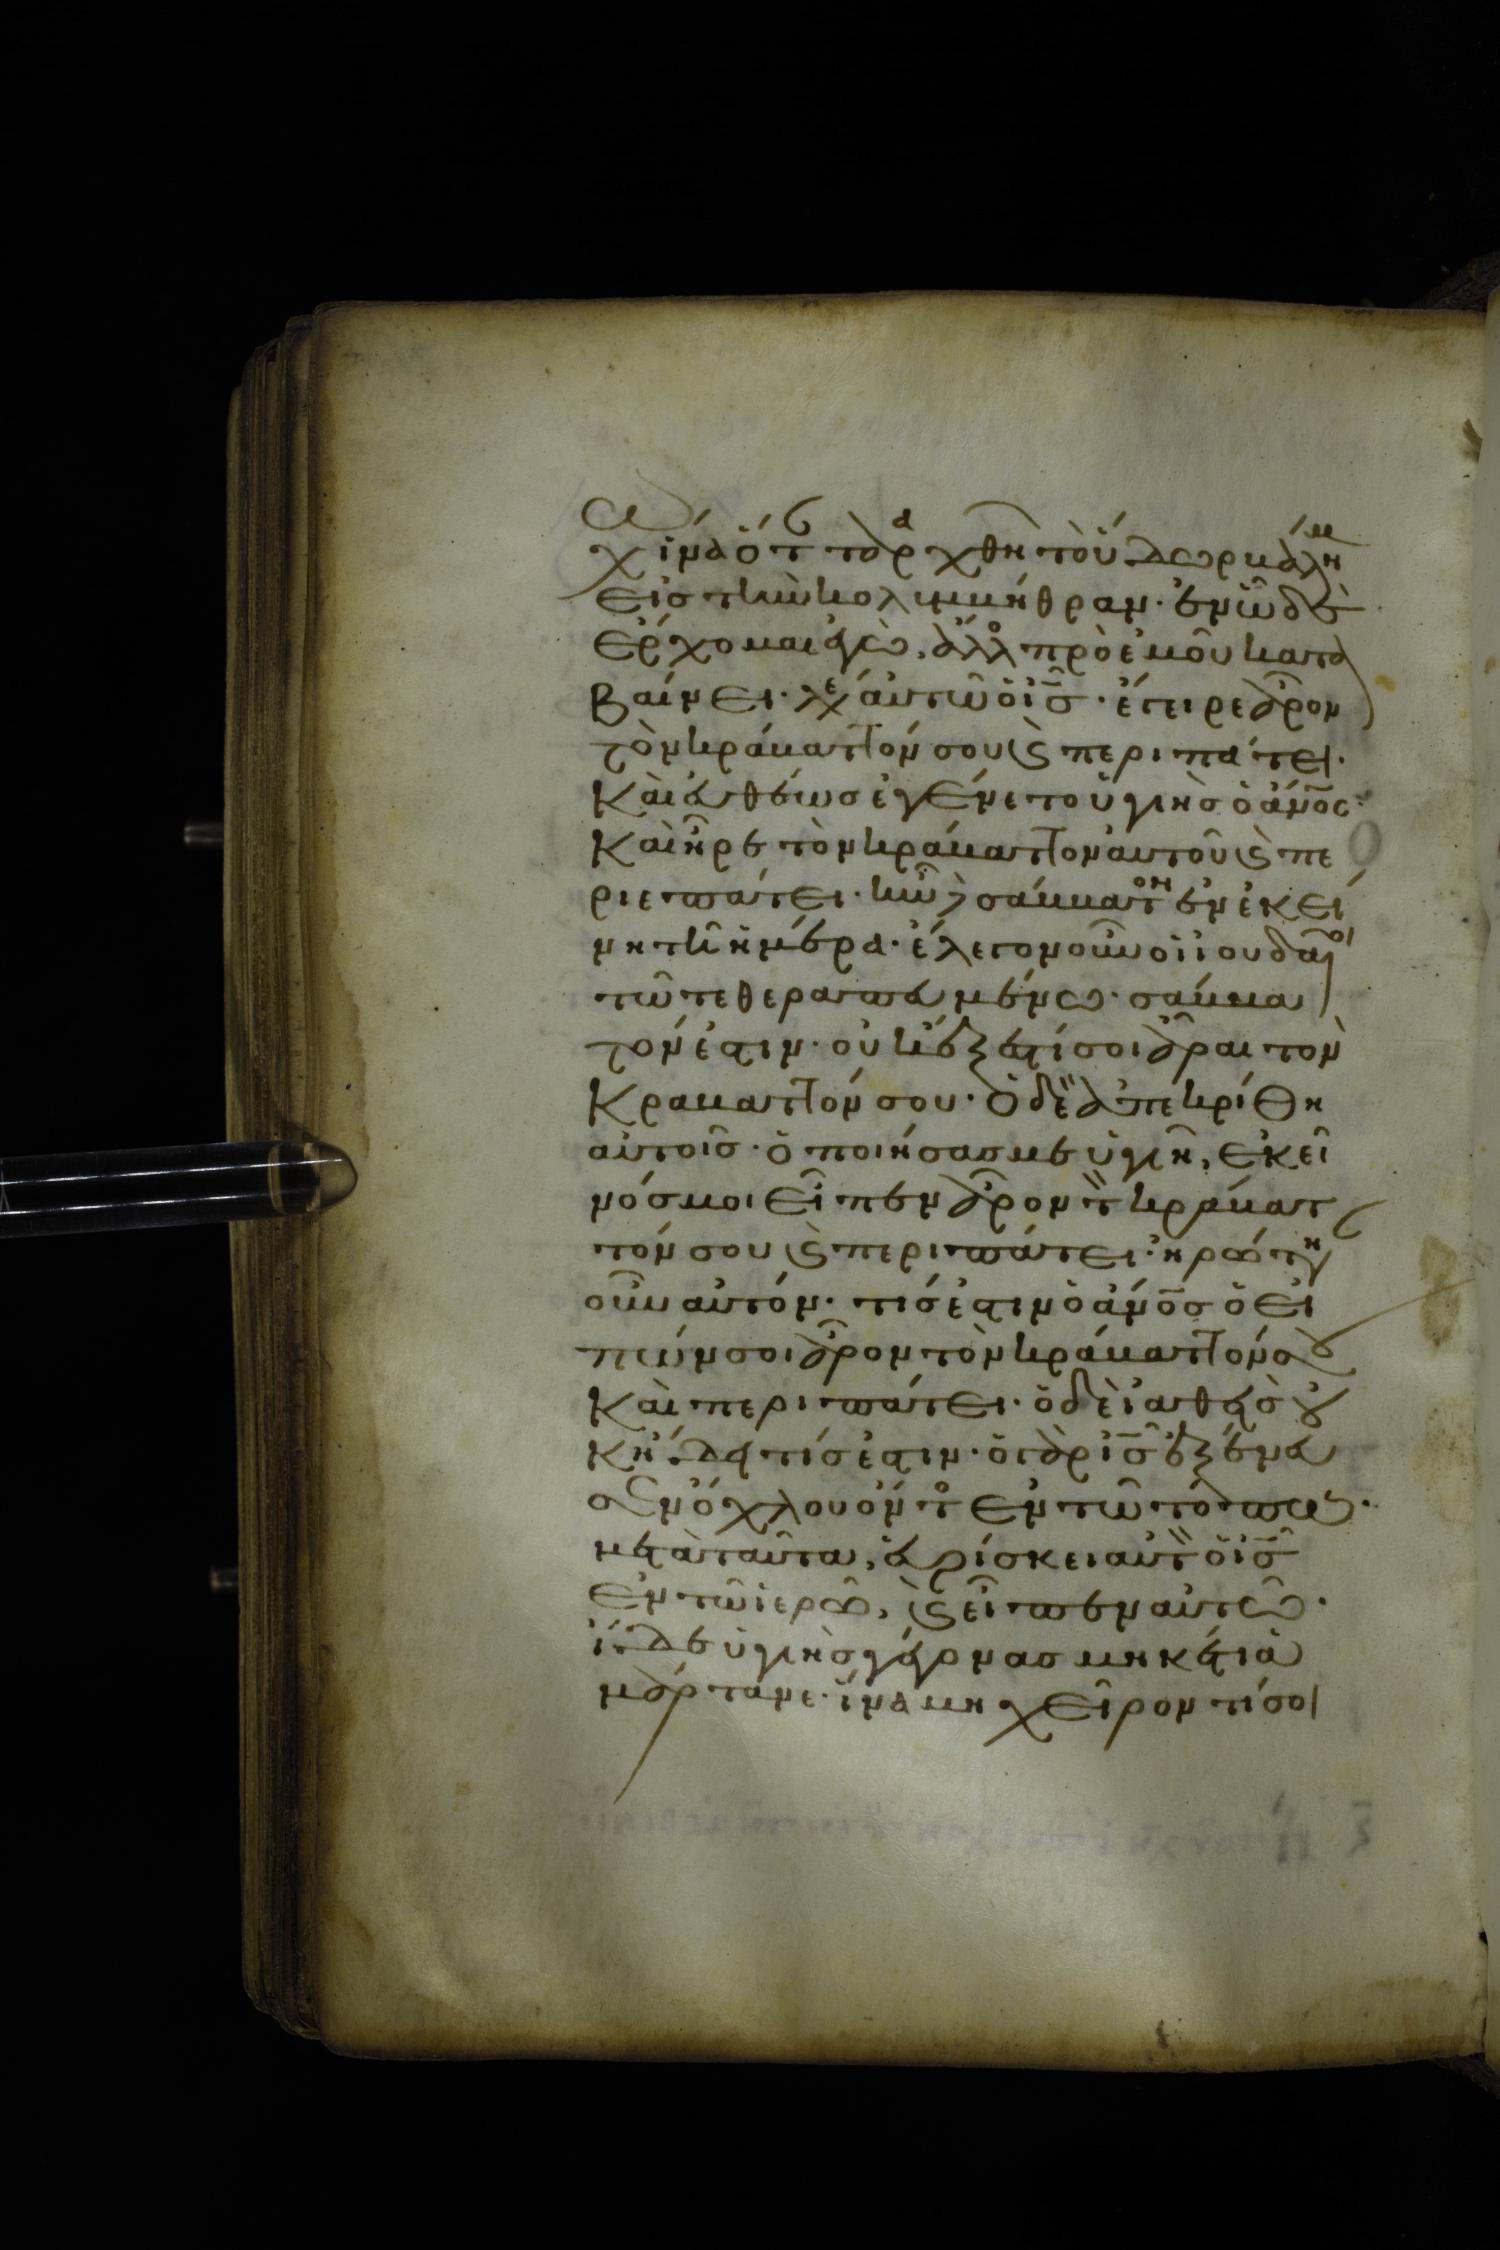 χω ἵνα ὅταν ταραχθῆ τὸ ὕδωρ βάλη με
εἰς τὴν κολυμβήθραν· ἐν ὧ δὲ
ἔρχομαι ἐγὼ, ἄλλος πρὸ ἐμοῦ κατα
βαίνει· λέγει αὐτῶ ὁ ι̅ς̅· ἔγειρε ἆρον
τὸν κράβαττόν σου καὶ περιπάτει·
Καὶ εὐθέως ἐγένετο ὑγιὴς ὁ ἄν̅ο̅ς̅·
Καὶ ἦρε τὸν κράβαττον αὐτοῦ καὶ πε
ριεπάτει· ἦν δὲ σάββατον ἐν ἐκεί
νη τῆ ἡμέρα· ἔλεγον οὖν οἱ ἰουδαῖοι
τῶ τεθεραπευμένω· σάββα
τόν ἐστιν· οὐκ ἔξεστί σοι ἆραι τὸν
Κράβαττόν σου· ὁ δὲ ἀπεκρίθη
αὐτοῖς· ὁ ποιήσας με ὑγιῆ, ἐκεῖ
νός μοι εἶπεν ἆρον τὸν κράβατ
τόν σου καὶ περιπάτει· ἠρώτησαν
οὖν αὐτόν· τίς ἐστιν ὁ ἄν̅ο̅ς̅ ὁ εἰ
πών σοι ἆρον τὸν κράβαττόν σου
Καὶ περιπάτει· ὁ δὲ ἰαθεὶς οὐ
κ ἤδει τίς ἐστιν· ὁ γὰρ ι̅ς̅ ἐξένευ
σεν ὄχλου ὄντος ἐν τῶ τόπω·
μετὰ ταῦτα, εὑρίσκει αὐτὸν ὁ ι̅ς̅
ἐν τῶ ἱερῶ, καὶ εἶπεν αὐτῶ·
ἴδε ὑγιὴς γέγονας μηκέτι ἁ
μάρτανε· ἵνα μὴ χεῖρον τί σοι